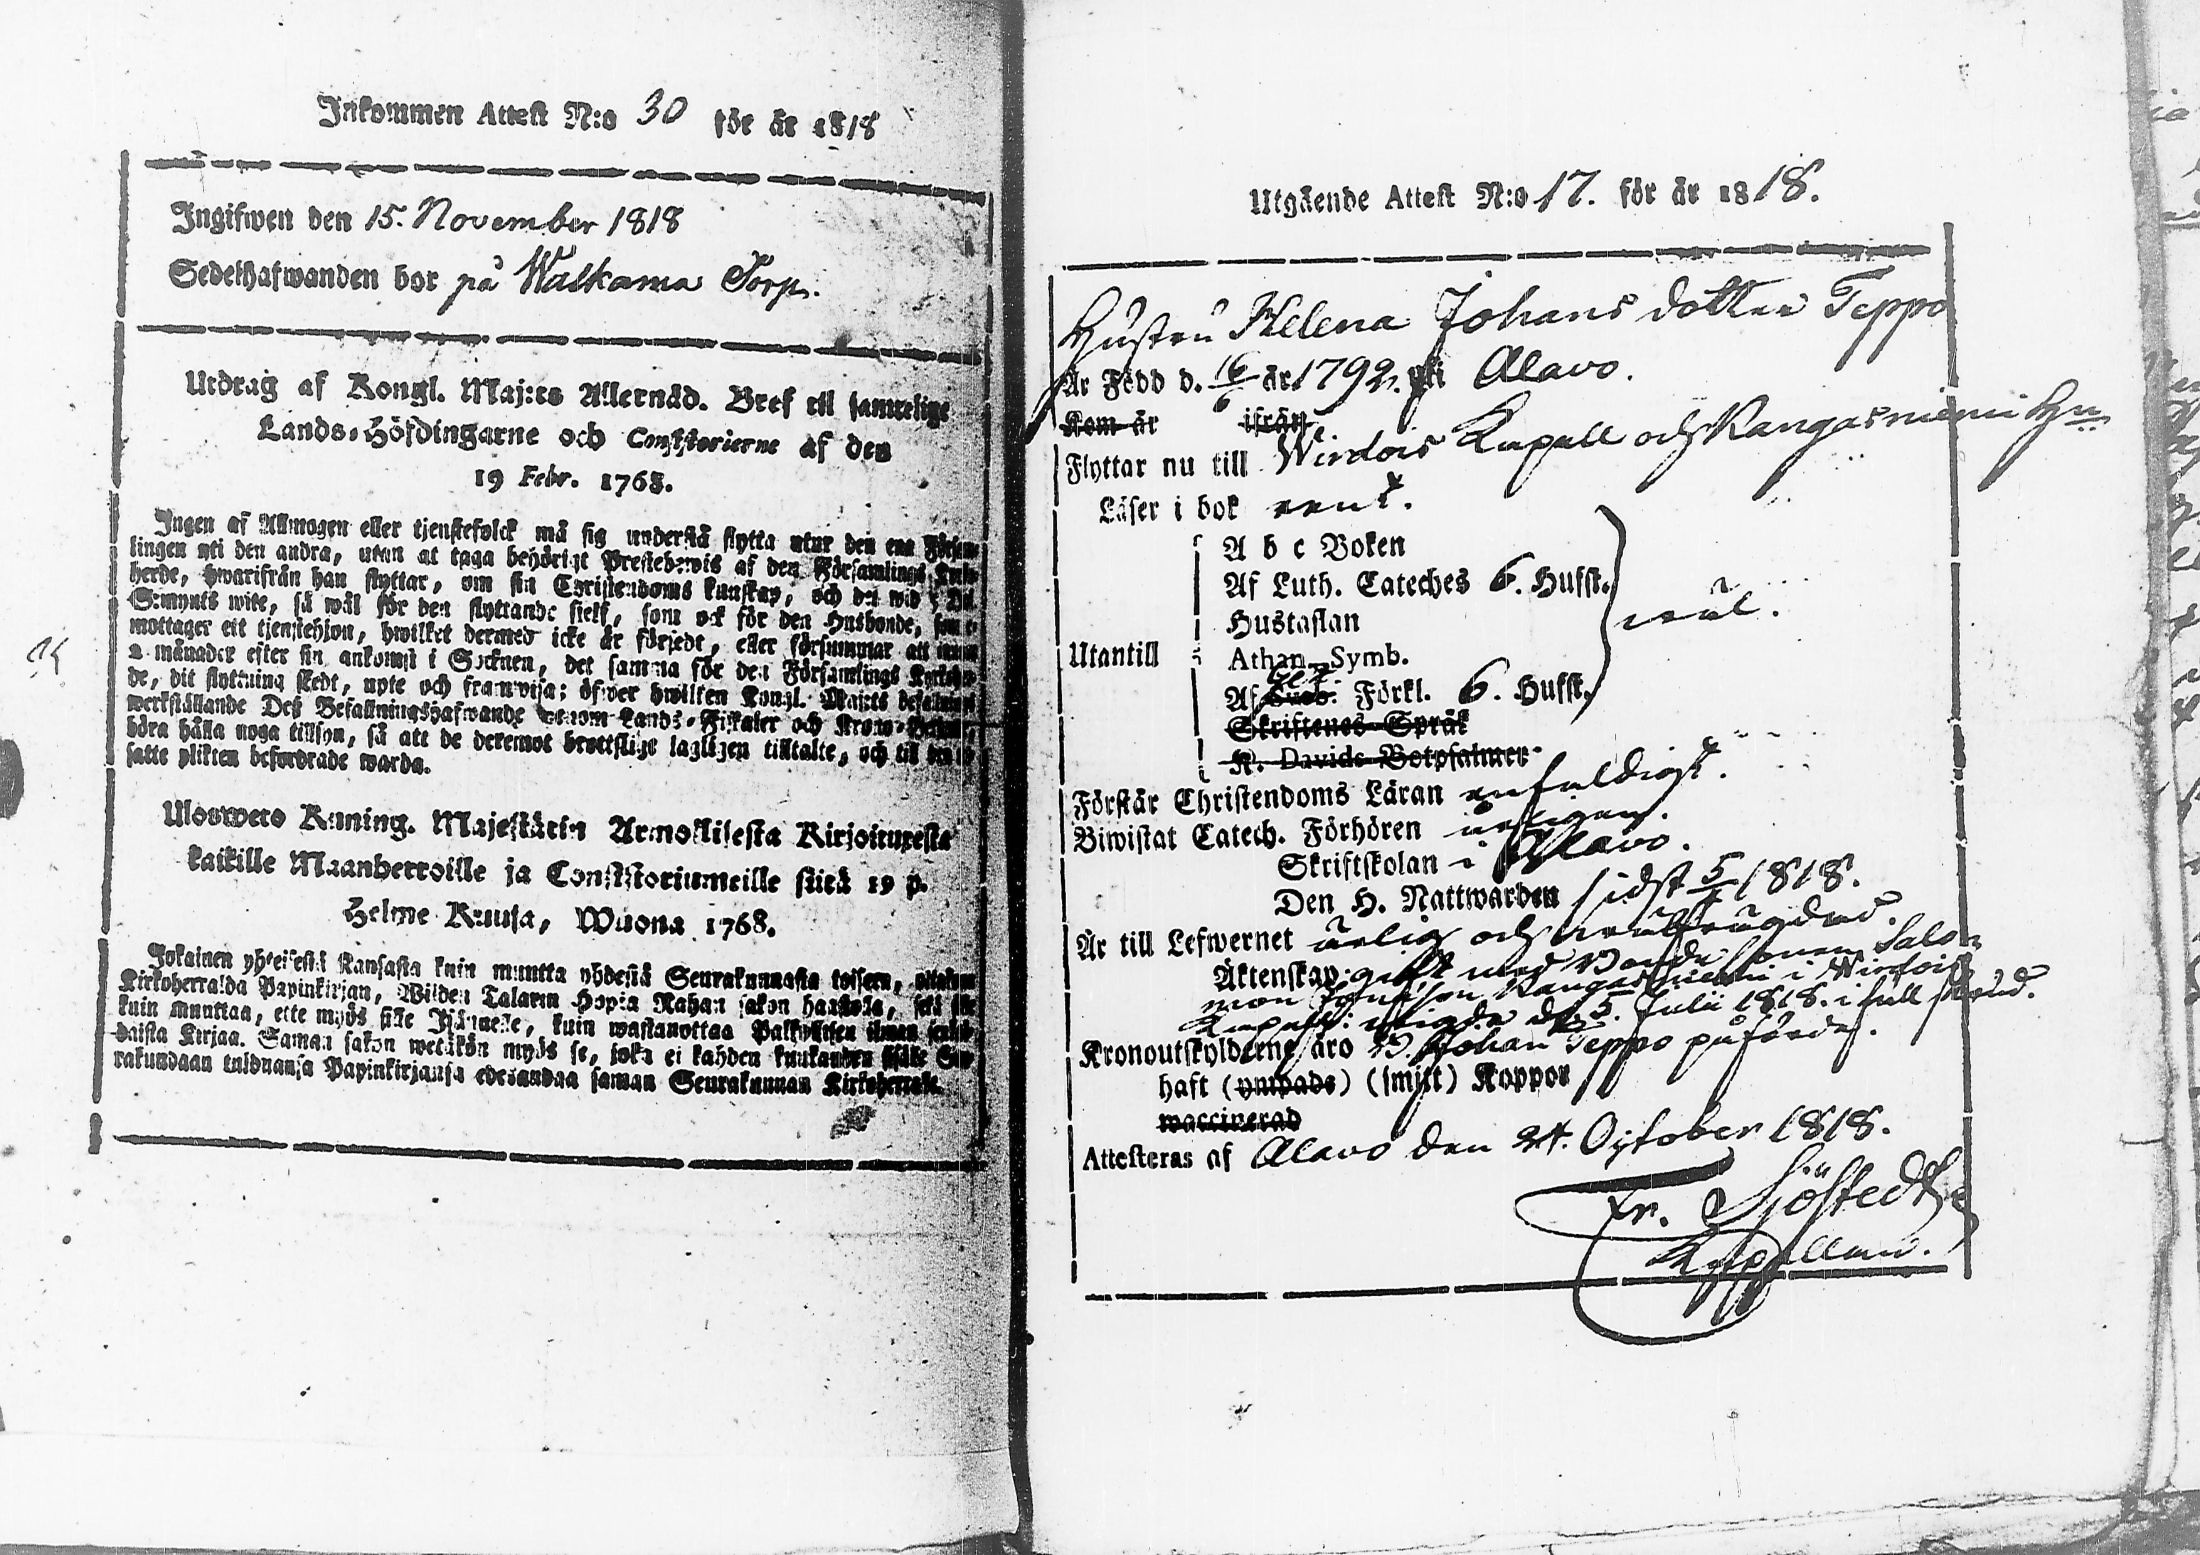 Inkommen Attest N:o 30 för år 1818
Ingifwen den 15. November 1818
Sedelhafwanden bor på Walkama Torp.
Utdrag af Kongl. Maj:ts Allernåd. Bref til samtelige
Lands-Höfdingarne och Consistorierne af den
19 Febr. 1768.
Ingen af Allmogen eller tjenstefolck må sig understå flytta utur den ena Försam-
lingen uti den andra, utan at taga behörigt Prestebewis af den Församlings Kyrko-
herde, hwarifrån han flyttar, om sin Christendoms kunskap, och det wid 5 Dal.
S:mynts wite, så wäl för den flyttande sjelf, som ock för den Husbonde, som e-
mottager ett tjenstehjon, hwilket dermed icke är försedt, eller försummar att inom
2 månader efter sin ankomst i Socknen, det samma för den Församlings Kyrkoher-
de, dit flyttning skedt, upte och framwisa; öfwer hwilken Kongl. Maj:ts befallnings
werkställande Deß Befallningshafwande genom Lands-Fiskaler och Krono-Betjente,
böra hålla noga tillsyn, så att de deremot brottslige lagligen tilltalte, och til den ut-
satte plikten befordrade warda.
Uloswero Kuning. Majestätin Armollisesta Kirjoituxesta
kaikille Maanherroille ja Consistoriumeille siitä 19 p.
Helme Kuusa, Wuona 1768.
Jokainen yhteisestä Kansasta kuin muutta yhdestä Seurakunnasta toiseen, ottakoon
Kirkoherralda Papinkirjan, Wiiden Talarin Hopia Rahan sakon haastolla, sekä se
kuin muuttaa, ette myös sille Isännelle, kuin wastanottaa Palkollisen ilman sencal-
daista Kirjaa. Saman sakon wetäkön myös se, joka ei kahden kuukauden sisälle Seu-
rakundaan tulduansa Papinkirjansa edesandaa saman Seurakunnan Kirkoherralle.
Utgående Attest N:o 17. för år 1818.
Hustru Helena Johans dotter Teppo
Är Född d. 16/6 år 1792. uti Alavo.
Kom år ifrån
Flyttar nu till Wirdois Kapell och Kangasniemi Hn
Läser i bok rent.
A b c Boken
Af Luth. Cateches 6. Hufst.
Hustaflan
wäl.
Utantill
Athan. Symb.
Af Sweb. Förkl. 6. Hufst.
Skriftenes Språk
K. Davids Botpsalmer
Förstår Christendoms Läran enfaldigt.
Biwistat Catech. Förhören årligen.
Skriftskolan i Alavo.
Den H. Nattwarden sidst 5/7 1818.
Är till Lefwernet ärlig och wälfrägdad.
Äktenskap: gift med Bonde Sonen Salo-
mon Kangasniemi i Wirdois
Kapell: wigde d. 5. Julii 1818. i full skrud.
Kronoutskylderne äro B. Johan Teppo påförde.
haft (ympade) (smitt) Koppor
waccinerad
Attesteras af Alavo den 24. October 1818.
Fr. Sjöstedt
Kapellan.